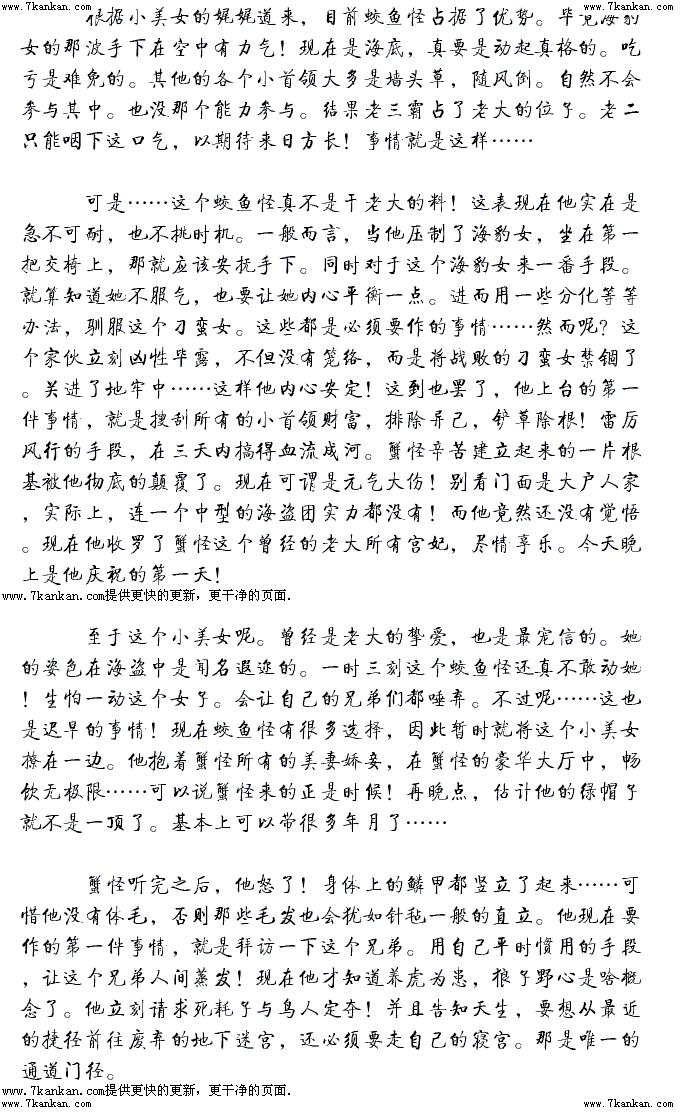 www.7kankan.com www.7kankan.com
根据小美女的娓娓道来，目前蛟鱼怪占据了优势。毕竟海豹
女的那波手下在空中有力气！现在是海底，真要是动起真格的。吃
亏是难免的。其他的各个小首领大多是墙头草，随风倒。自然不会
参与其中。也没那个能力参与。结果老三霸占了老大的位子。老二
只能咽下这口气，以期待来日方长！事情就是这样……
可是……这个蛟鱼怪真不是干老大的料！这表现在他实在是
急不可耐，也不挑时机。一般而言，当他压制了海豹女，坐在第一
把交椅上，那就应该安抚手下。同时对于这个海豹女来一番手段。
就算知道她不服气，也要让她内心平衡一点。进而用一些分化等等
办法，驯服这个刁蛮女。这些都是必须要作的事情……然而呢？这
个家伙立刻凶性毕露，不但没有笼络，而是将战败的刁蛮女禁锢了
。关进了地牢中……这样他内心安定！这到也罢了，他上台的第一
件事情，就是搜刮所有的小首领财富，排除异己，铲草除根！雷厉
风行的手段，在三天内搞得血流成河。蟹怪辛苦建立起来的一片根
基被他彻底的颠覆了。现在可谓是元气大伤！别看门面是大户人家
，实际上，连一个中型的海盗团实力都没有！而他竟然还没有觉悟
。现在他收罗了蟹怪这个曾经的老大所有宫妃，尽情享乐。今天晚
上是他庆祝的第一天！
www.7kankan.com提供更快的更新，更干净的页面.
至于这个小美女呢。曾经是老大的挚爱，也是最宠信的。她
的姿色在海盗中是闻名遐迩的。一时三刻这个蛟鱼怪还真不敢动她
！生怕一动这个女子。会让自己的兄弟们都唾弃。不过呢……这也
是迟早的事情！现在蛟鱼怪有很多选择，因此暂时就将这个小美女
撩在一边。他抱着蟹怪所有的美妻娇妾，在蟹怪的豪华大厅中，畅
饮无极限……可以说蟹怪来的正是时候！再晚点，估计他的绿帽子
就不是一顶了。基本上可以带很多年月了……
蟹怪听完之后，他怒了！身体上的鳞甲都竖立了起来……可
惜他没有体毛，否则那些毛发也会犹如针毡一般的直立。他现在要
作的第一件事情，就是拜访一下这个兄弟。用自己平时惯用的手段
，让这个兄弟人间蒸发！现在他才知道养虎为患，狼子野心是啥概
念了。他立刻请求死耗子与鸟人定夺！并且告知天生，要想从最近
的捷径前往废弃的地下迷宫，还必须要走自己的寝宫。那是唯一的
通道门径。
www.7kankan.com提供更快的更新，更干净的页面.
www.7kankan.com www.7kankan.com